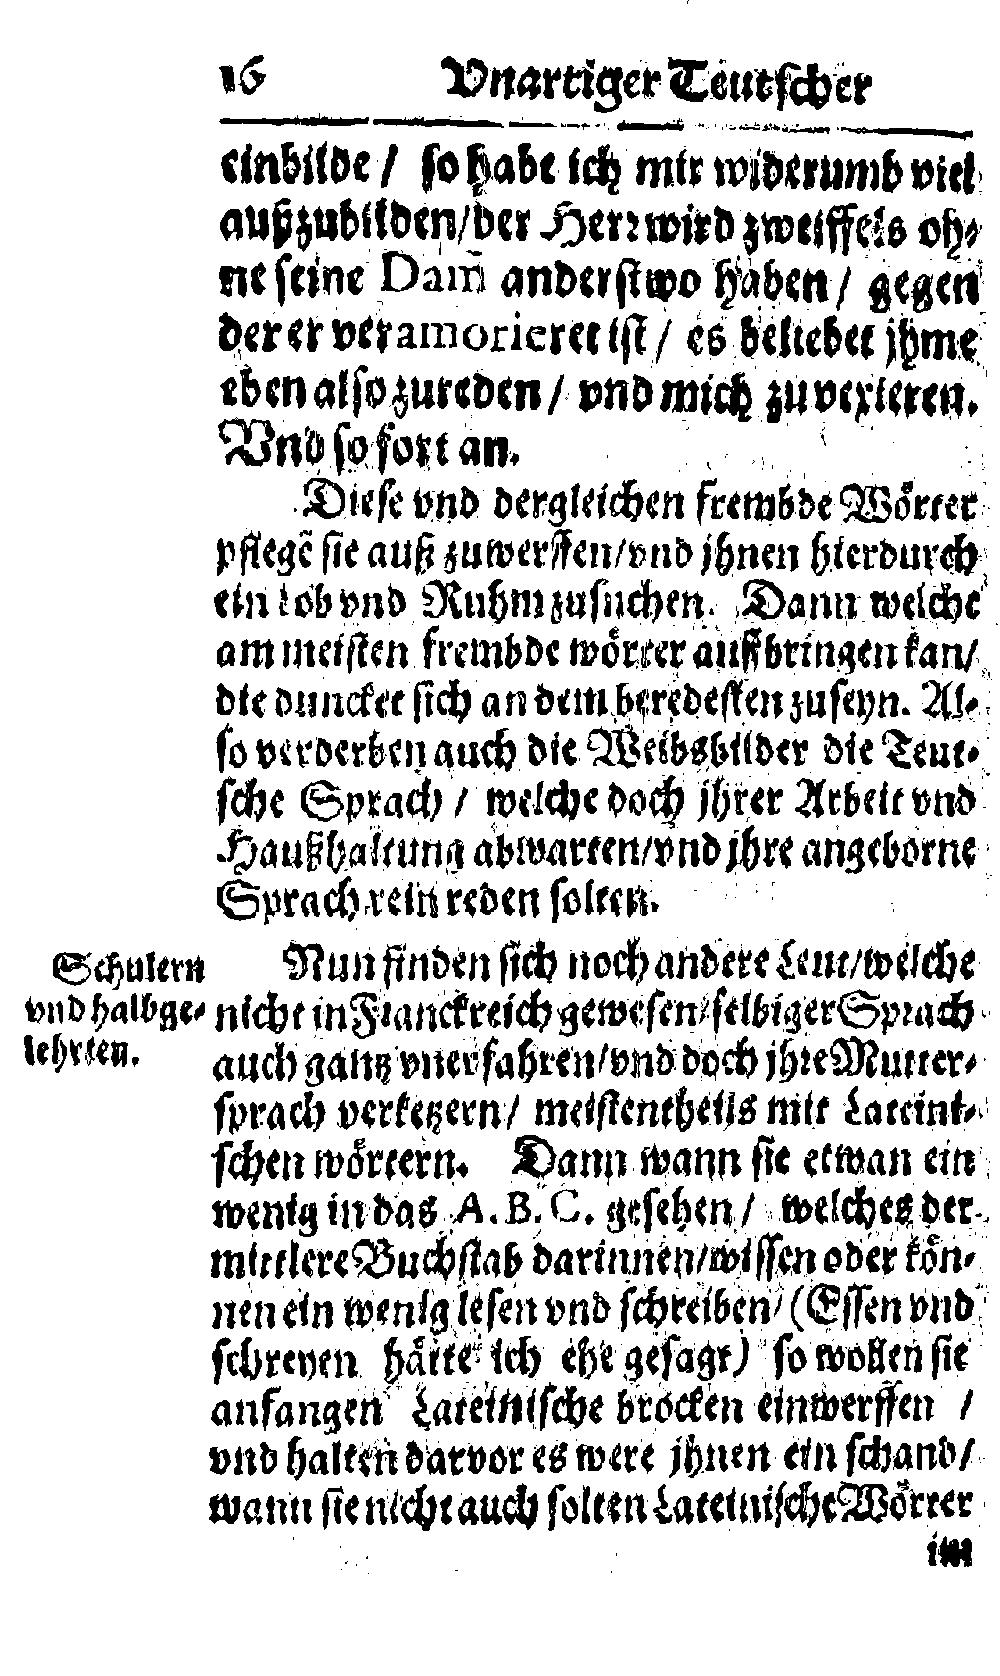 16 Vnartiger Teutscher
einbilde / so habe ich mir widerumb viel
außzubilden/der Herr wird zweiffels oh-
ne seine Dam̃ anderstwo haben / gegen
der er veramorieret ist / es beliebet jhme
eben also zureden / vnd mich zu vexieren.
Vnd so fort an.
Diese vnd dergleichen frembde Wörter
pflegẽ sie auß zuwerffen/vnd jhnen hierdurch
ein Lob vnd Ruhm zusuchen. Dann welche
am meisten frembde wörter auffbringen kan/
die duncket sich an dem beredesten zuseyn. Al-
so verderben auch die Weibsbilder die Teut-
sche Sprach / welche doch jhrer Arbeit vnd
Haußhaltung abwarten/vnd jhre angeborne
Sprach rein reden solten.
Schulern
vnd halbge-
lehrten.
Nun finden sich noch andere Leut/welche
nicht in Franckreich gewesen/selbiger Sprach
auch gantz vnerfahren/vnd doch jhre Mutter-
sprach verketzern/ meistentheils mit Lateini-
schen wörtern. Dann wann sie etwan ein
wenig in das A.B.C. gesehen / welches der
mittlere Buchstab darinnen/wissen oder kön-
nen ein wenig lesen vnd schreiben/(Essen vnd
schreyen hätte ich ehe gesagt) so wollen sie
anfangen Lateinische brocken einwerffen /
vnd halten darvor es were jhnen ein schand/
wann sie nicht auch solten Lateinische Wörter
im